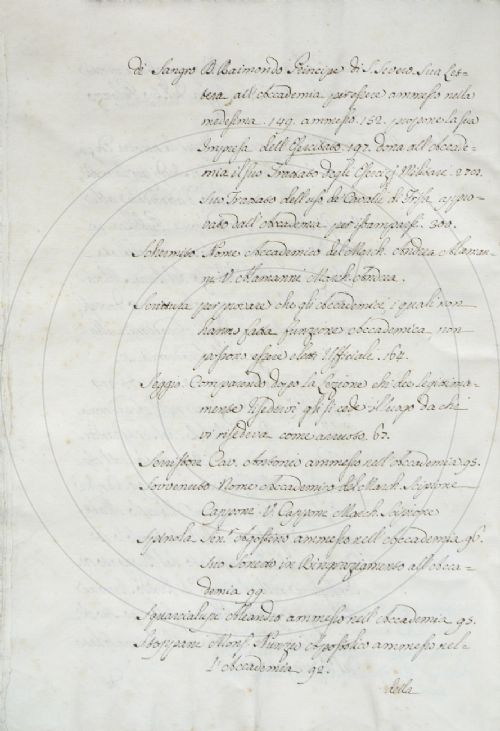 di Sangro D. Raimondo Principe di S. Severo. Sua Let-
tera all'Accademia per essere ammesso nella
medesima. 149. ammesso. 152. propone la sua
Impresa dell'Esercitato. 197. dona all'Accade-
mia il suo Trattato degli Esercizj Militari. 272.
suo Trattato dell'uso de Cavalli di Frisa appro-
vato dall'Accademia per istamparsi. 300.
Schermito Nome Accademico del March. Andrea Alaman-
ni V. Alamanni March. Andrea.
Scrittura per provare che gli Accademici, i quali non
hanno fatta funzione Accademica non
possono essere eletti Uffiziale. 164.
Seggio. Comparendo dopo la sezione chi dee legittima-
mente risedervi gli si cede il luogo da chi
vi risedeva come anziato. 67.
Cav. Antonio ammesso nell'Accademia. 95.
Sovvenuto Nome Accademico del March. Scipione
Cappone. V. Cappone March. Scipione
Spinola Agostino ammesso nell'Accademia. 96.
suo Sonetto in Ringraziamento all'Acca-
demia. 99.
Squarcialupi Aleandro ammesso nell'Accademia. 95.
Stoppani Mons. Nunzio Apostolico ammesso nel-
l'Accademia. 92.
della